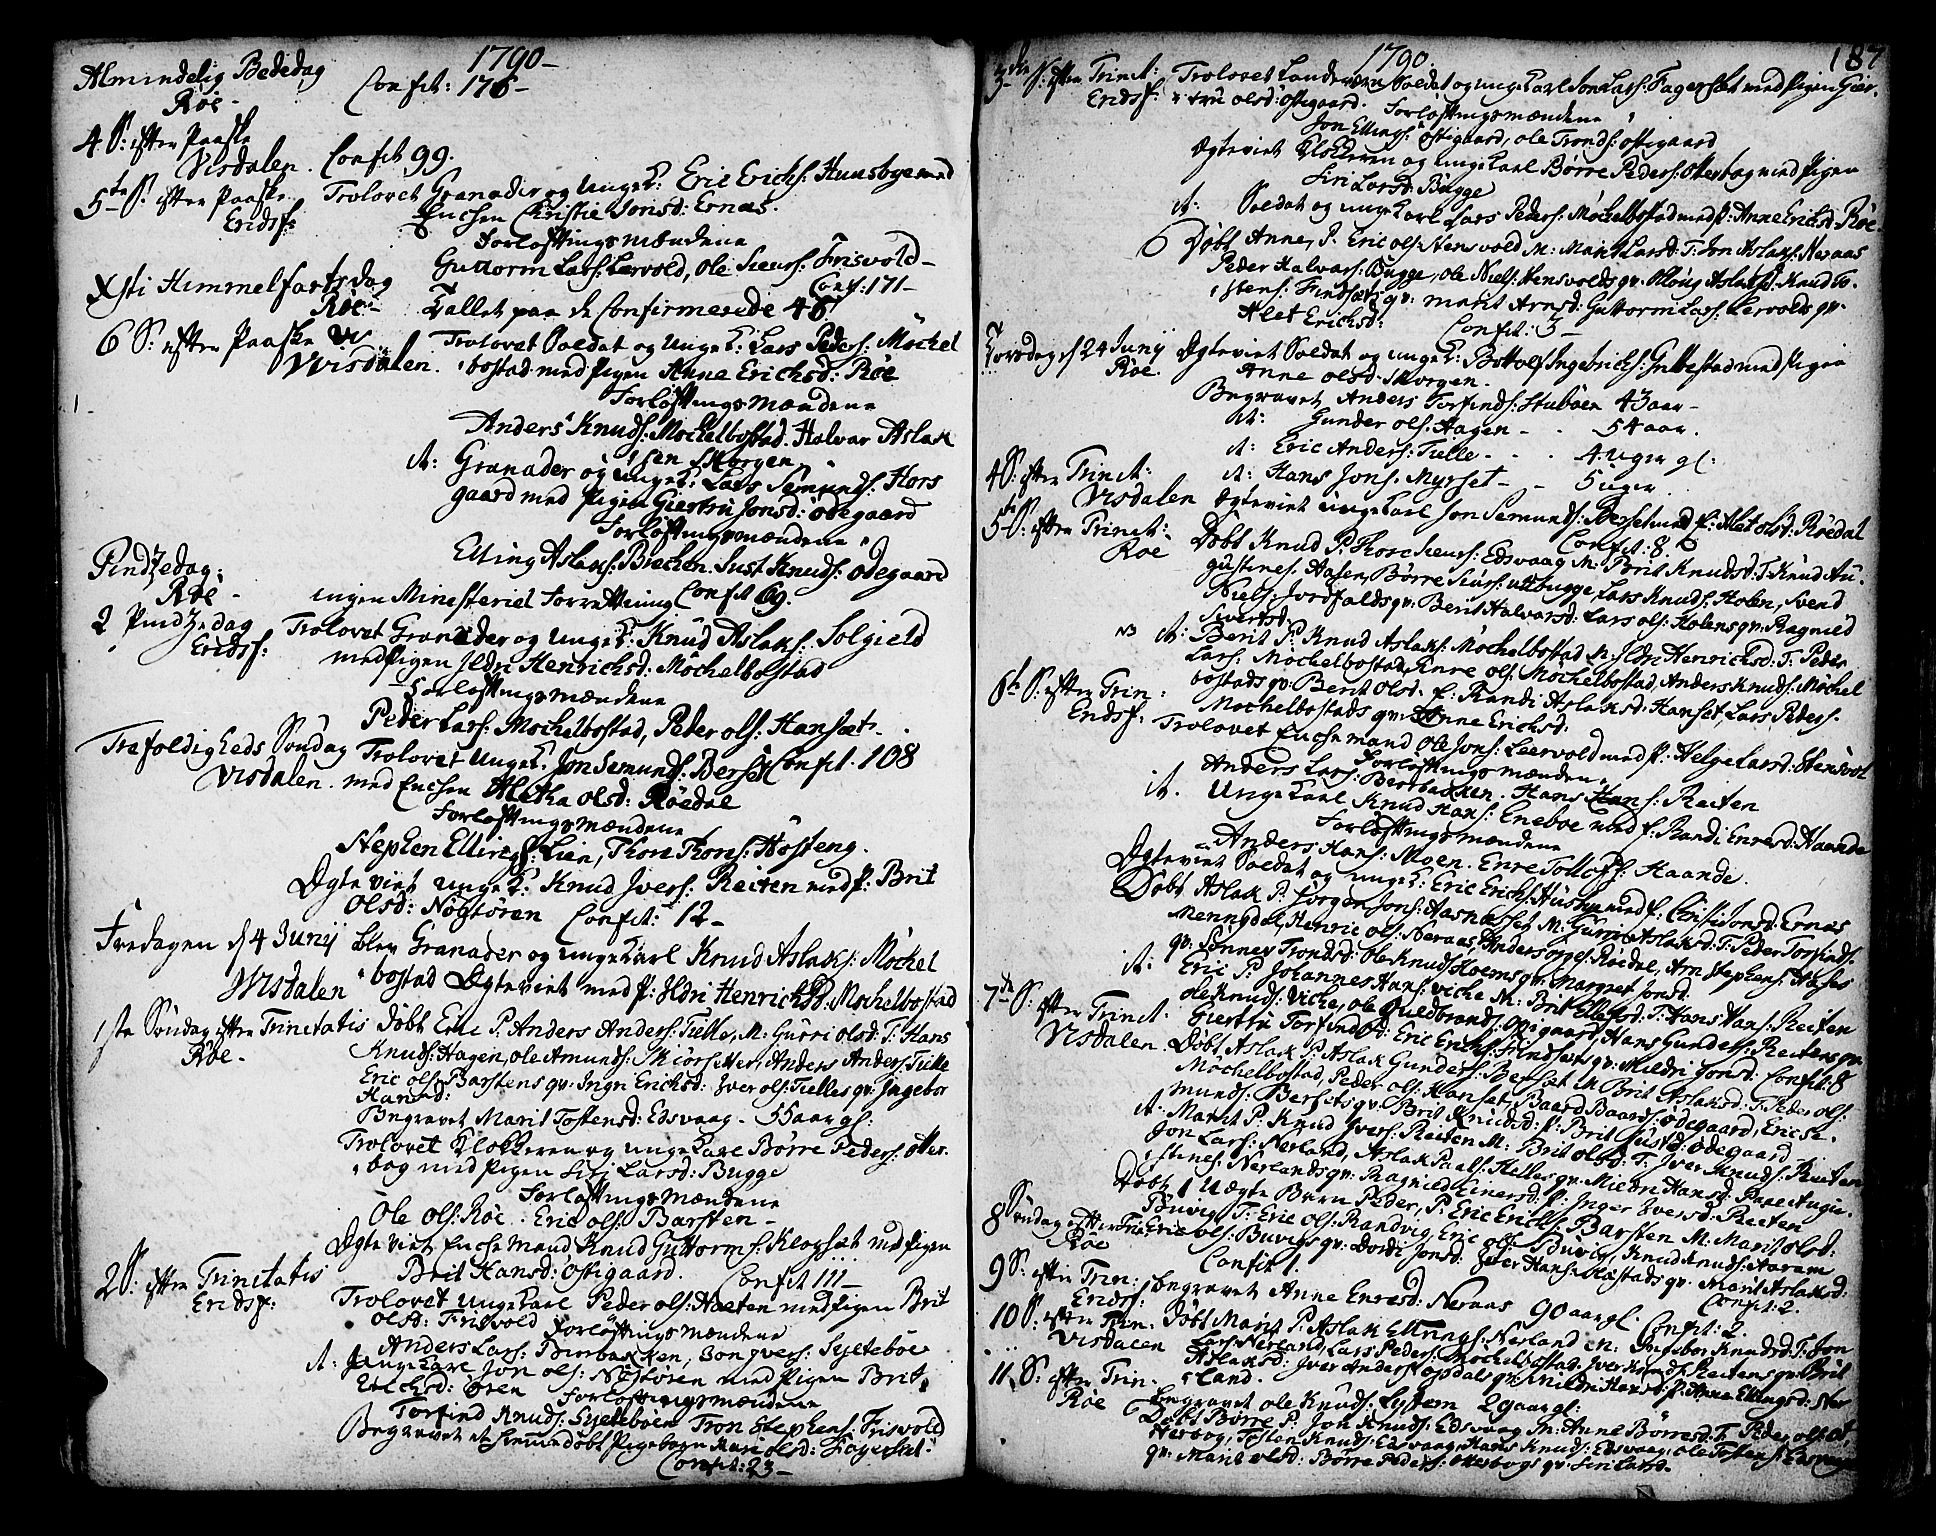 1790-
Almindelig Bededag
Roe- Confit: 176-
4 S: efter Paaske
Visdalen. Confit 99.
5te S: efter Paaske. Trolovet Granader og Ungek: Eric Erichs: Huusbye med
Eridsf: Enchen Christie Jonsd: Ernas.
Forløftningsmændene
Guttorm Lars: Lervold, Ole Siurs: Frisvold-
Xsti Himmelfartsdag Conf: 171-
Røe- Tallet paa de Confirmerede 48
6 S: efter Paaske Trolovet Soldat og Ungek: Lars Peders: Møchel
Visdalen. bostad med Pigen Anne Erichsd: Røe
Forløftningsmændene
Anders Knuds: Møchelbostad. Halvar Aslak
sen Morgen
it: Granader og Ungek: Lars Semunds: Hors
gaard med Pigen Giertru Jonsd: Ødegaard
Forløftningsmændene
Elling Aslaks: Brechen. Just Knuds: Ødegaard
Pindzedag:
Røe- ingen Ministeriel Forretning Confit 69.
2 Pindzedag Trolovet Granader og Ungek: Knud Aslaks: Solgield
Eridsf: med Pigen Ildri Henrichsd: Møchelbostad
Forløftningsmændene
Peder Lars: Møchelbostad, Peder ols: Hansæt-
Trefoldigheds Søndag Trolovet Ungek: Jon Semunds: Berset Confit: 108
Visdalen. med Enchen Aletha Olsd: Røedal
Forløftningsmændene
Stephen Ellings: Lien, Thore Thores: Høsteng.
Ægteviet Ungek: Knud Ivers: Reiten med P: Brit
Olsd: Nøgtøren Confit: 12-
Fredagen d 4 Junij blev Granader og Unge Karl Knud Aslaks: Møchel
Visdalen bostad Ægteviet med P: Ildri Henrichsd: Møchelbostad
1ste Søndag efter Trinitatis Døbt Eric P. Anders Anders: Tielle, M: Gurri olsd: T: Hans
Røe- Knuds: Hagen, ole Amunds: Skiørsetter, Anders Anders: Tielle
Eric ols: Barstens qv: Ingn Erichsd: Iver ols: Tielles qv: Ingebor
Hansd:
Begravet Marit Tostensd: Edsvaag- 55 aar gl:
Trolovet Klokkeren og unge Karl Børre Peders: Otter
bog med Pigen Siri Larsd: Bugge
Forløftningsmændene
Ole Ols: Røe. Eric ols: Barsten-
Ægteviet Enchemand Knud Guttorms: Klogsæt med Pigen
Brit Hansd: Østigaard. Confit 111-
2 S: efter Trinitatis Trolovet Unge Karl Peder ols: med Pigen Brit
Eridsf: Olsd: Frisvold Forløftningsmændene
Anders Lars: Bierbakken, Jon Ivers: Syltebøe
it: Unge Karl Jon ols: Nøstøren med Pigen Brit
Erichsd: Øren Forløftningsmændene
Torfind Knuds: Syltebøen Tron Stephens: Frisvold
Begravet et hiemmedøbt Pigebarn Kari olsd: Fagerslet-
Confit: 23-
1790. 187
3de S: efter Trinit: Trolovet Landeværn Soldat og unge Karl Jon Lars: Fagerslet med Pigen Gier
Eridsf: tru olsd: Østigaard. Forløftningsmændene
Jon Ellings: Østigaard, ole Tronds: Østigaard
Ægteviet Klokkeren og unge Karl Børre Peders: Otterbog med Pigen
Siri Larsd: Bugge
it: Soldat og unge Karl Lars Peders: Møchelbostad med P: Anne Erichsd: Røe-
Døbt Anne, P. Eric ols: Stensvold M: Marit Larsd: T: Jon Aslaks: Neraas
Peder Halvars: Bugge, ole Niels: Stensvolds qv: Olloug Aslaksd: Knud To-
stens: Findsæts qv: Marit Arnsd: Guttorm Lars: Lervolds qv-
Alet Erichsd: Confit: 5-
Torsdag d 24 Junij Ægteviet Soldat og Ungek: Bottolf Ingebrichs: Gribestad med Pigen
Røe. Anne Olsd: Morgen.
Begravet Anders Torfinds: Stubøen 43 aar-
it: Gunder ols: Hagen- 54 aar.
it: Eric Anders: Tielle- 4 uger gl:
4 S: efter Trinit: it: Hans Jons. Myrset- 5 uger
Visdalen Ægteviet Unge Karl Jon Semunds: Berset med P: Alet Olsd: Røedal
5te S: efter Trinit: Døbt Knud P: Thore Siurs: Edsvaag M: Brit Knudsd: T: Knud Au- Confit: 8
Røe gustines: Aasen, Børre Siurs: utbugge, Lars Knuds: Holen, Svend
Niels: Jordfalds qv: Berit Halvarsd: Lars ols: Holens qv: Ragnild
Sivertsd:
NB it: Berit P: Knud Aslaks: Møchelbostad M: Ildri Henrichsd: T: Peder
Lars: Møchelbostad, Enre ols: Møchelbostad, Anders Knuds: Møchel
6te S: efter Trin: bostads qv: Berit Olsd: P: Randi Aslaksd: Hanset, Lars Peders-
Eridsf: Møchelbostads qv: Anne Erichsd:
Trolovet Enchemand Ole Jons: Leervold med P: Helge Larsd: Stensvol
Forløftningsmændene
Anders Lars: Bierbakken. Hans Hans: Reiten
it. Unge Karl Knud Hans: Eneboe med P. Randi Enresd: Haande
Forløftningsmændene
Anders Hans: Moen. Enre Tollofs: Haande.
Ægteviet Soldat og Ungek: Eric Erichs: Husbye med P: Christi Jonsd: Ernas
Døbt Aslak P: Jørgen Jons: M: Gurri Aslaksd: T: Peder Torfinds.
Mengdal, Henric ols: Neraas, Anders Røedal, Arn Stephens: Høses
qv: Sønnev Trondsd: ole Knuds: Holms qv: Margret Jonsd:
it. Eric P: Johannes Hans: viche M: Brit Ellefsd: T: Hans Hans: Reiten
7de S: efter Trinit. ole Knuds: Viche, ole Guldbrands: Opigaard, Hans Gunders: Reitens qv
Giertru Torfindsd: Eric Erichs: Findsets qv: Mildri Jonsd: Confit: 8
Visdalen. Døbt Aslak P: Aslak Gunders: Berset M Brit Aslaksd: T: Peder ols:
Møchelbostad, Peder ols: Hanset, Baard Baards: Ødegaard, Eric Se-
munds: Bersets qv: Brit Knudsd: P: Brit Justsd: Ødegaard
it. Marit P: Knud Ivers: Reiten M: Brit Olsd: T: Iver Knuds: Reiten
Jon Lars: Nerland, Aslak Paals: Helles qv: Mildri Hansd: Paal Augu-
stines: Nerlands qv: Ragnild Einersd: P: Inger Iversd: Reiten
Døbt 1 Uægte Barn Peder, P: Eric Erichs: Barsten M: Marit olsd:
8 Søndag efter Trin: Buvig T: Eric ols: Randvig, Eric ols: Buvig, Knud Knuds: Aarøm
Røe Eric ols: Buvigs qv: Dordi Jonsd: Peder Hans: Næstads qv: Marit Aslaksd:
Confit 1. Confit: 2.
9 S: efter Trin: Begravet Anne Enresd: Neraas 90 aar gl.
Eridsf: Confit: 2.
10 S: efter Trin. Døbt Marit P: Aslak Ellings: Nerland M: Ingebor Knudsd: T: Jon
Visdalen Lars: Nerland, Lars Peders: Møchelbostad, Iver Knuds: Reitens qv: Brit
Aslaksd: Iver Anders: opdals qv: Mildri Hansd: P: Anne Ellingsd: Ner
11 S: efter Trin- land.
Røe Begravet ole Knuds: Lystem 29 aar gl:
Døbt Børre P: Jon Knuds: Edsvaag M: Anne Børresd: T. Peder ols: Ot,
terbog, Tosten Knuds: Edsvaag, Hans Knuds: Edsvaag, ole Tostens: Edsvaag
qv: Marit olsd: Børre Peders: Otterbogs qv: Siri Larsd-